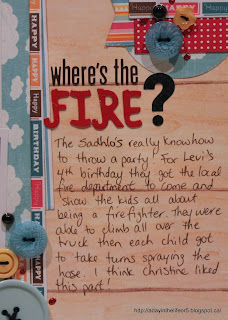 HAPPY
HAPPY
HAPPY
Happy
BIRTHDAY
where's the
FIRE?
The Sadhlo's really know how
to throw a party! For Levi's
4th birthday they got the local
fire department to come and
show the kids all about
being a firefighter. They were
able to climb all over the
truck then each child got
to take turns spraying the
hose. I think christine liked
this part!
http://adayinthelifeof5.blogspot.ca/